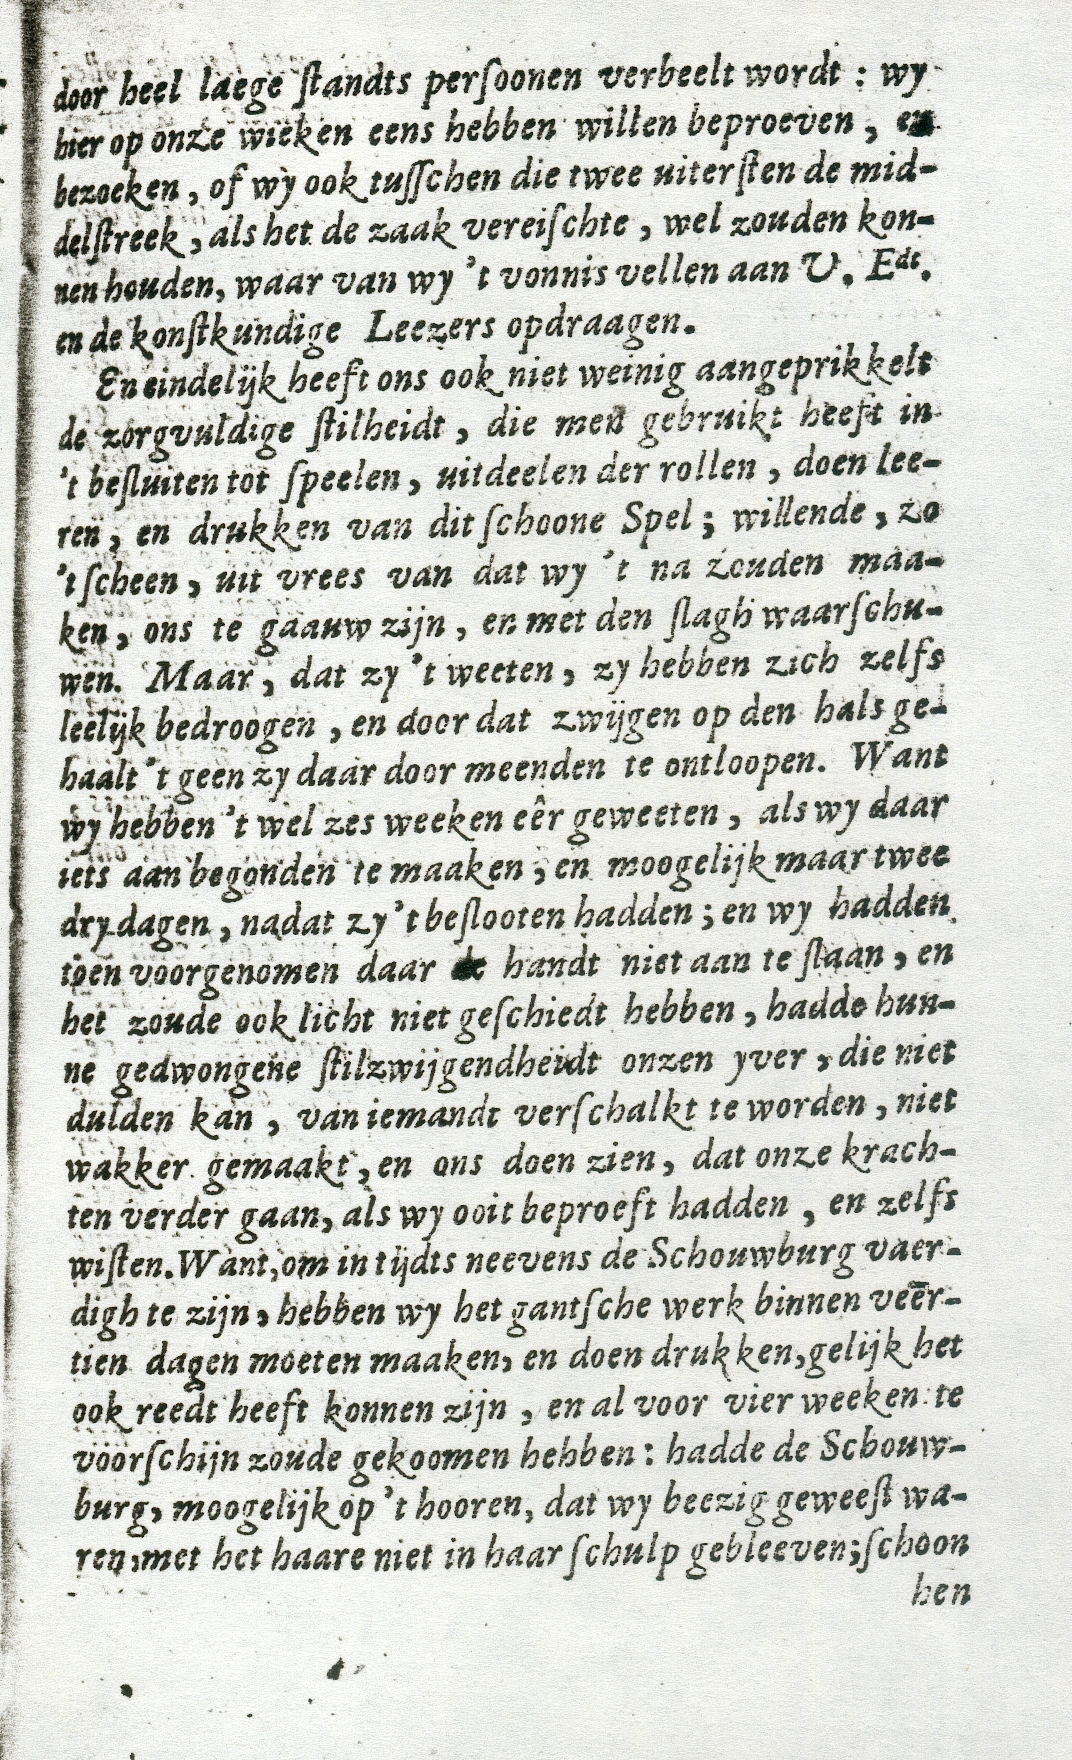 door heel laege ſtandts perſoonen verbeelt wordt : wy
hier op onze wieken eens hebben willen beproeven , en
bezoeken , of wy ook tuſſchen die twee uiterſten de mid-
delſtreek , als het de zaak vereiſchte , wel zouden kon-
nen houden, waar van wy 't vonnis vellen aan U. Edt.
en de konſtkundige Leezers opdraagen.
En eindelijk heeft ons ook niet weinig aangeprikkelt
de zorgvuldige ſtilheidt , die men gebruikt heeft in
't beſluiten tot ſpeelen , uitdeelen der rollen , doen lee-
ren , en drukken van dit ſchoone Spel ; willende , zo
't ſcheen , uit vrees van dat wy 't na zouden maa-
ken , ons te gaauw zijn , en met den ſlagh waarſchu-
wen. Maar , dat zy 't weeten , zy hebben zich zelfs
leelijk bedroogen , en door dat zwijgen op den hals ge-
haalt 't geen zy daar door meenden te ontloopen. Want
wy hebben 't wel zes weeken eêr geweeten , als wy daar
iets aan begonden te maaken ; en moogelijk maar twee
dry dagen , nadat zy 't beſlooten hadden ; en wy hadden
toen voorgenomen daar de handt niet aan te ſlaan , en
het zoude ook licht niet geſchiedt hebben , hadde hun-
ne gedwongene ſtilzwijgendheidt onzen yver , die niet
dulden kan , van iemandt verſchalkt te worden , niet
wakker gemaakt , en ons doen zien , dat onze krach-
ten verder gaan, als wy ooit beproeft hadden , en zelfs
wiſten. Want, om in tijdts neevens de Schouwburg vaer-
digh te zijn , hebben wy het gantſche werk binnen veēr-
tien dagen moeten maaken, en doen drukken, gelijk het
ook reedt heeft konnen zijn , en al voor vier weeken te
voorſchijn zoude gekoomen hebben : hadde de Schouw-
burg, moogelijk op 't hooren, dat wy beezig geweeſt wa-
ren, met het haare niet in haar ſchulp gebleeven; ſchoon
hen